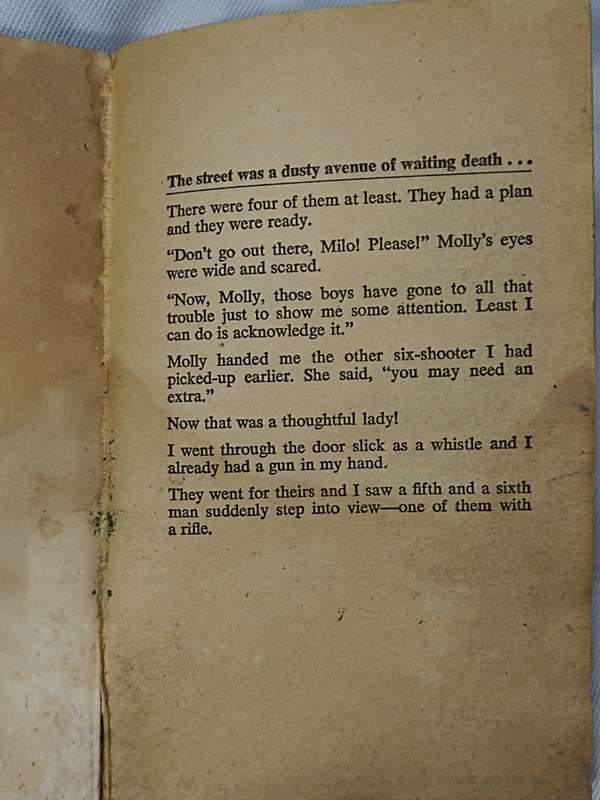 The street was a dusty avenue of waiting death . . .
There were four of them at least. They had a plan
and they were ready.
“Don’t go out there, Milo! Please!” Molly’s eyes
were wide and scared.
“Now, Molly, those boys have gone to all that
trouble just to show me some attention. Least I
can do is acknowledge it.”
Molly handed me the other six-shooter I had
picked-up earlier. She said, “you may need an
extra.”
Now that was a thoughtful lady!
I went through the door slick as a whistle and I
already had a gun in my hand.
They went for theirs and I saw a fifth and a sixth
man suddenly step into view—one of them with
a rifle.